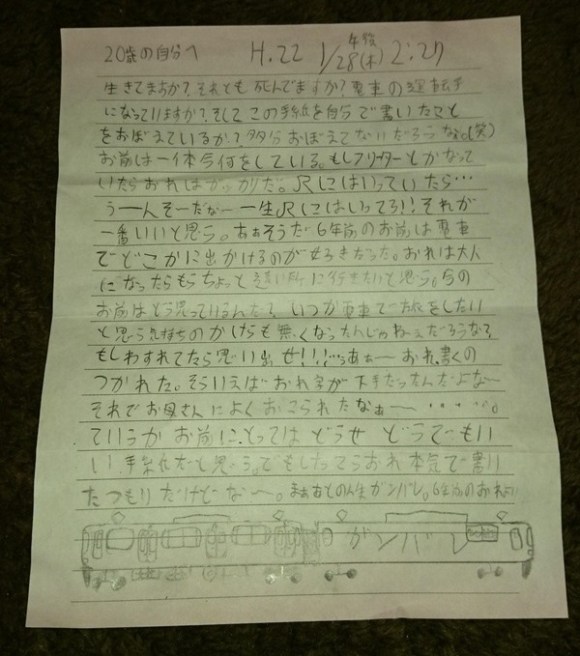 20歳の自分へ H.22 1/28(木) 午後 2:27
生きてますか?それとも死んでますか?電車の運転手
になっていますか?そしてこの手紙を自分で書いたこと
をおぼえているか?多分おぼえてないだろうなぁ。(笑)
お前は一体今何をしている。もしフリーターとかなって
いたらおれはガッカリだ。JRにはいっていたら…
うーんそーだなー一生JRにはいってろ!!それが
一番いいと思う。おぉそうだ6年前のお前は電車
でどこかに出かけるのが好きだった。おれは大人
になったらもうちょっと遠い所に行きたいと思う。今の
お前はどう思っているんだ?いつか電車で旅をしたい
と思う気持ちのかけらも無くなったんじゃねぇだろうな?
もしわすれてたら思い出せ!!!おれ書くの
つかれた。そういえばおれ字が下手だったんだよなー
それでお母さんによくおこられたなぁー・・・・・。
ていうかお前にとってはどうせどうでもい
い手紙だと思う。でもおれ本気で書い
たつもりだけどなー。まぁあとの人生ガンバレ。6年前のおれ
ガンバレ